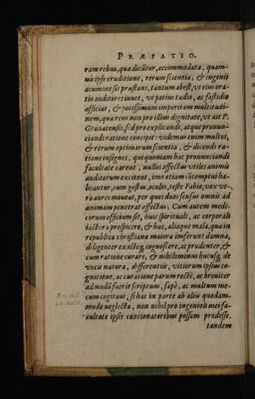 PRÆFATIO.
ram rebus, quæ dicūtur, accommodata, quam-
uis ipse eruditione, rerum scientia, & ingenij
acumine sit præstans, tantum abest, vt eius ora-
tio auditores iuuet, vt potius tædio, ac fastidio
afficiat, & potissimum imperitam multitudi-
nem, quæ rem non pro illius dignitate, vt ait P.
Granatensis, sed pro explicandi, atque pronun-
ciandi ratione concipit: videmus enim multos,
& rerum optimarum scientia, & dicendi ra-
tione insignes, qui quoniam hac pronunciandi
facultate carent, nullos affectus vtiles animis
auditorum excitent, imo etiam cōtemptui ha-
beantur, cum gestus, oculos, teste Fabio, vox ve-
rò aures moueat, per quos duos sensus omnis ad
animum penetrat affectus. Cum autem medi-
corum officium sit, huic spirituali, ac corporali
iacturæ prospicere, & hæc, aliaque mala, quæ in
republica christiana maiora inserunt damna,
diligenter exactéq; cognoscere, ac prudenter, &
cum ratione curare, & nihilominus hucusq; de
vocis natura, differentiis, vitiorum ipsius co-
gnitione, ac curatione parum rectè, ac breuiter
admodū fuerit scriptum, sæpè, ac multum me-
cum cogitaui, si hac in parte ab aliis quodam-
modo neglecta, non nihil pro ingenioli mei fa-
cultate ipsis concionatoribus possem prodesse.
tandem